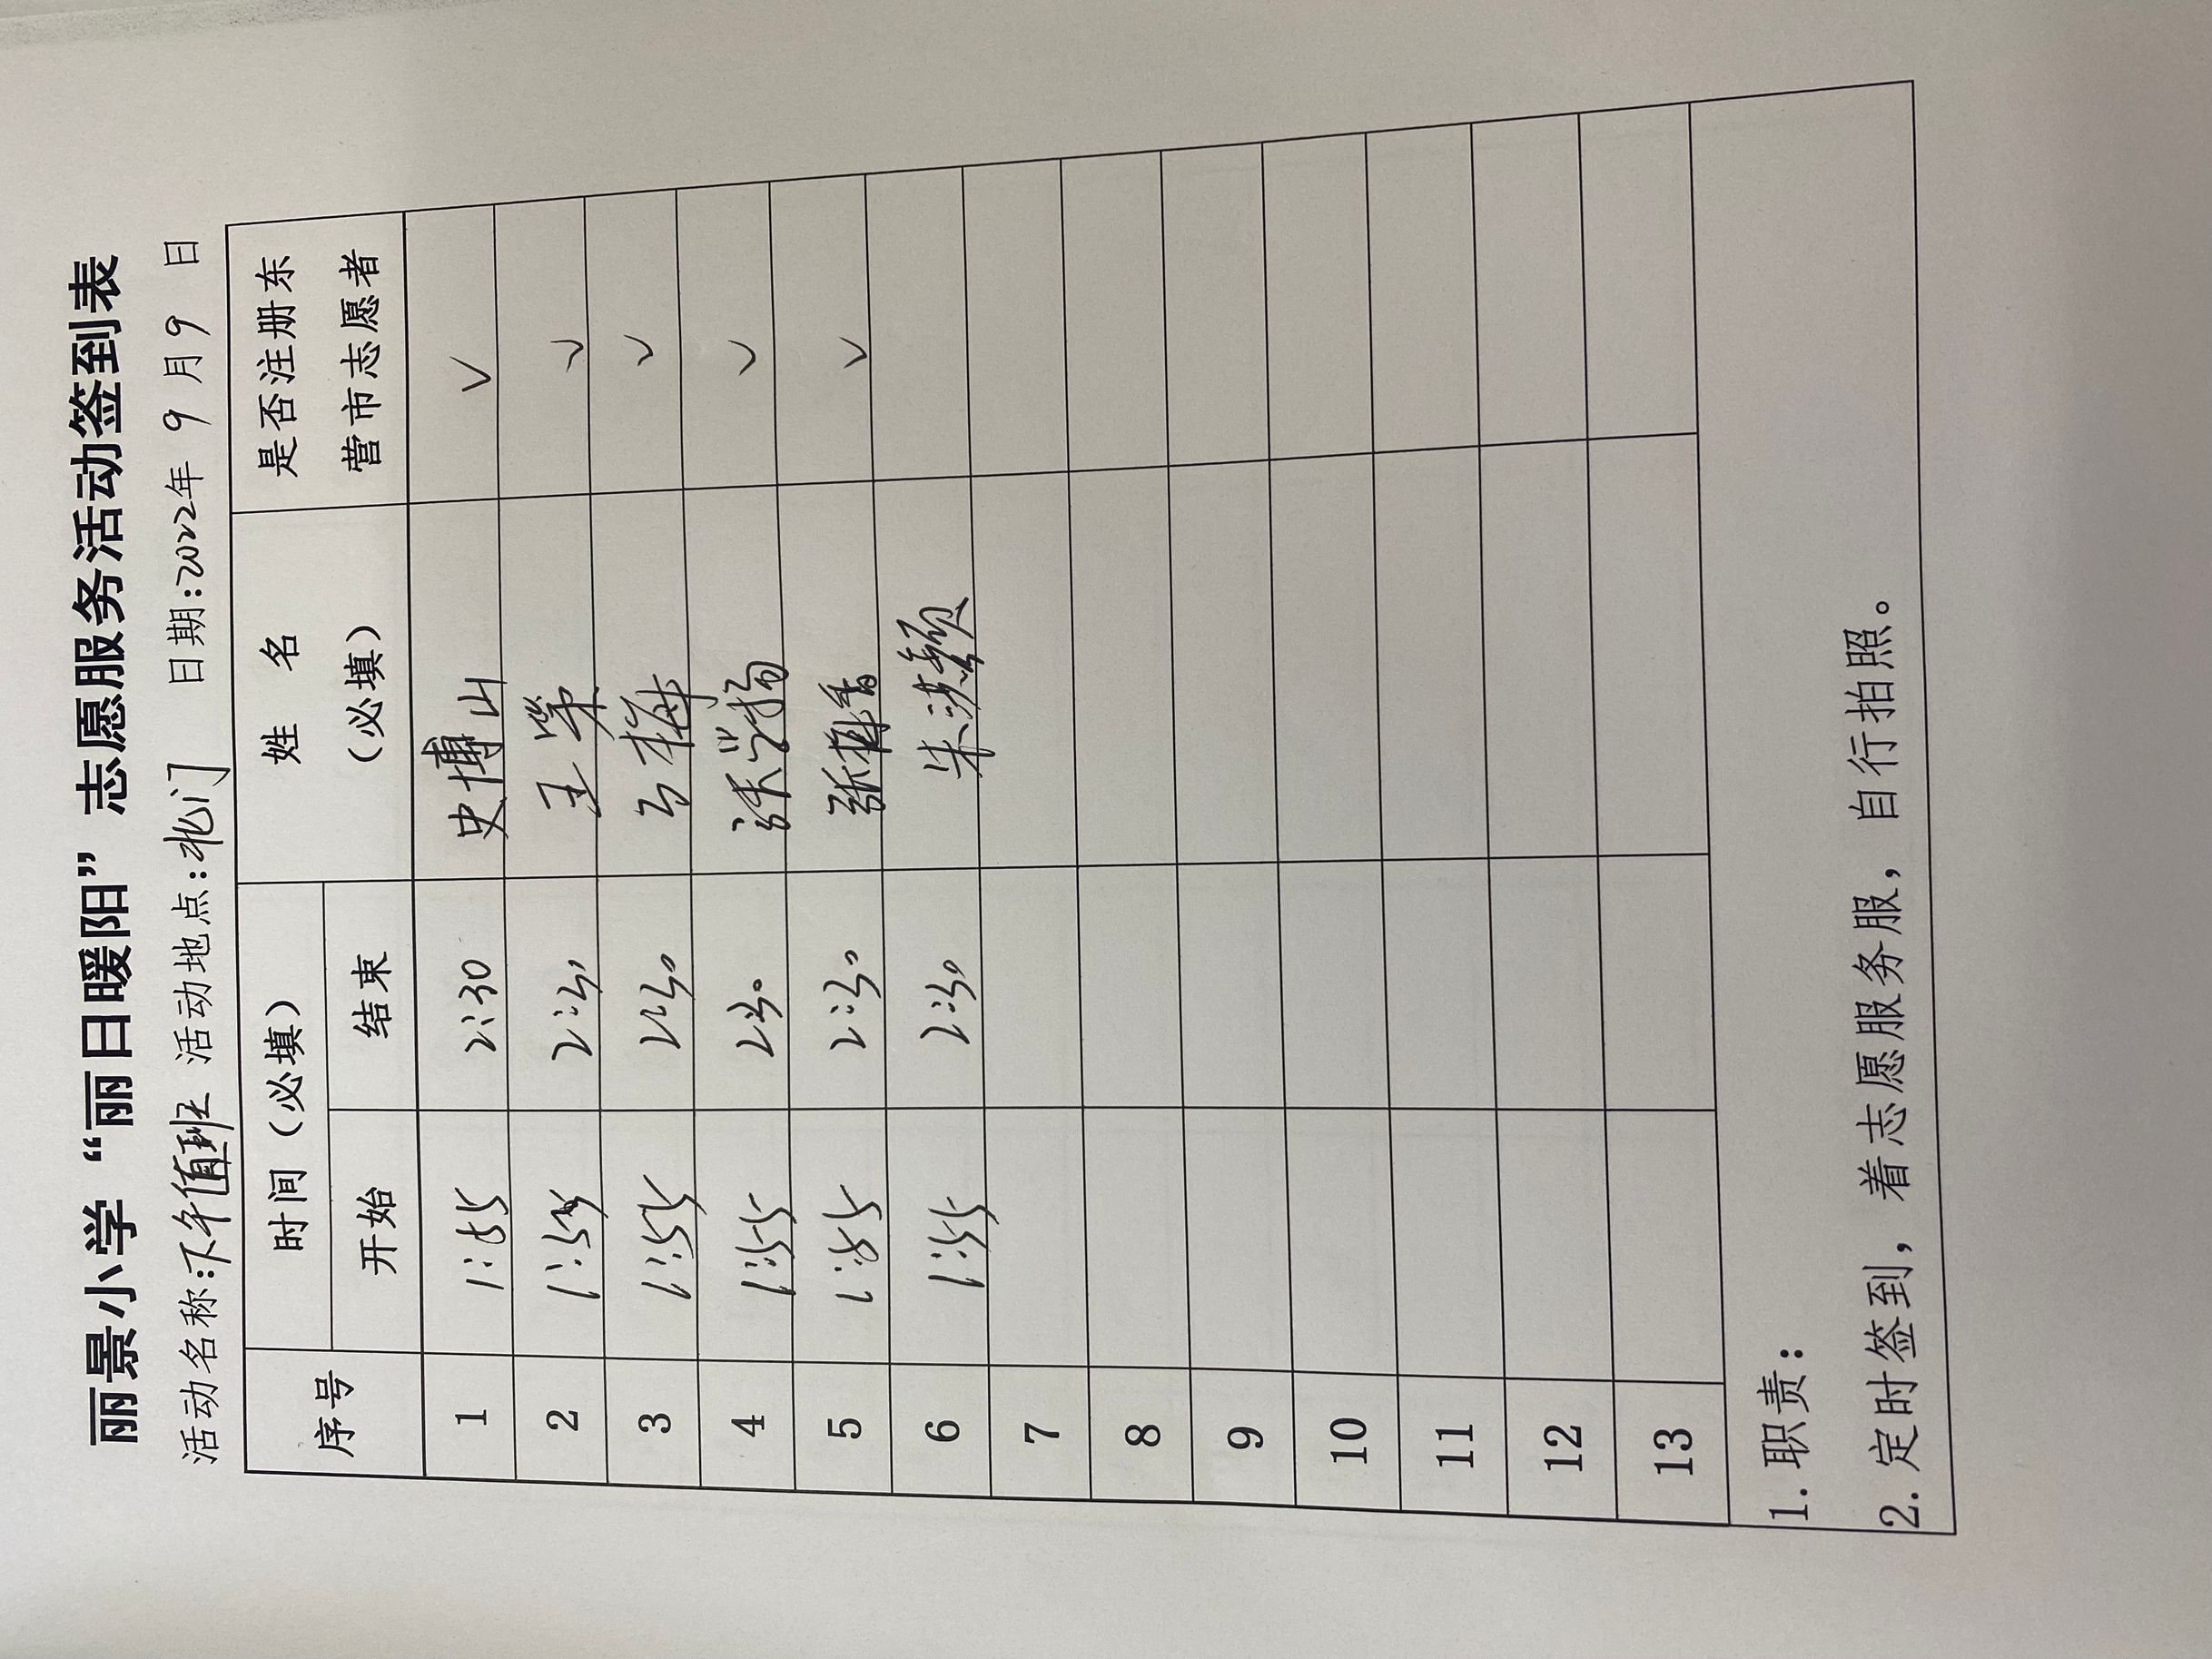 丽景小学“丽日暖阳”志愿服务活动签到表
活动名称:下午值班 活动地点:北门 日期:2022年 9 月 9 日
序号 时间（必填） 姓 名（必填） 是否注册东营市志愿者
开始 结束
1 1:55 2:30 史博山 √
2 1:55 2:30 王荣 √
3 1:55 2:30 √
4 1:55 2:30 张学扬 √
5 1:55 2:30 √
6 1:55 2:30
7
8
9
10
11
12
13
1.职责：
2.定时签到，着志愿服务服，自行拍照。